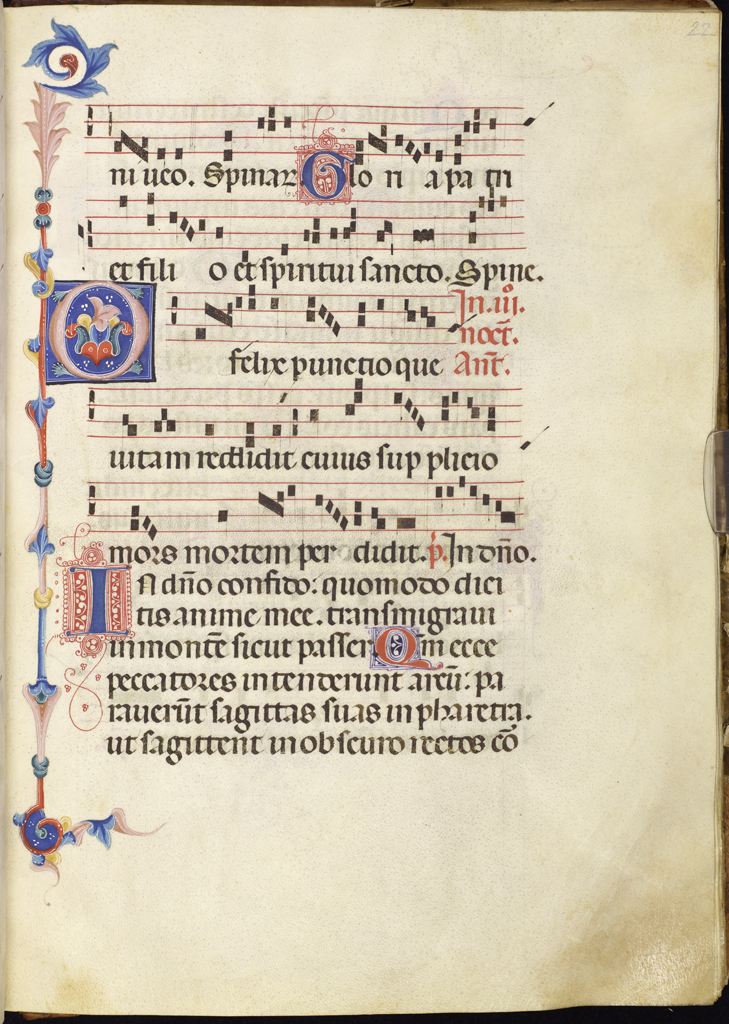 22
niueo. Spinar Glo ri a pa tri
et fili o et spiritui sancto. Spine.
O In .iii. noct. Ant.
felix punctio que
uitam reddidit cuius sup plicio
mors mortem per didit. p̄. In dn̄o.
IN dn̄o confido: quomodo dici
tis anime mee. transmigra in
in monte sicut passer. Qm̄ ecce
peccatores intenderunt arcū: pa
rauerūt sagittas suas in pharetra.
ut sagittent in obscuro rectos co